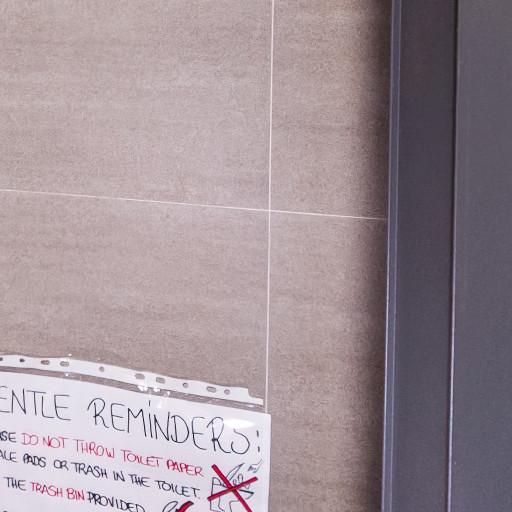 ENTLE REMINDERS:
SE DO NOT THROW TOILET PAPER
ALE PADS OR TRASH IN THE TOILET.
THE TRASH BIN PROVIDED